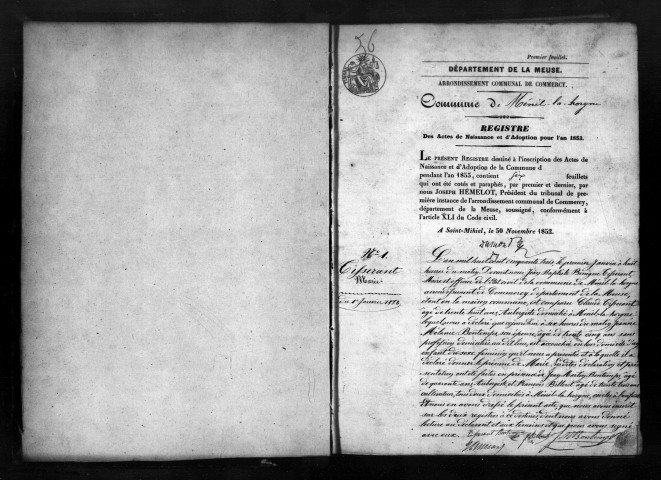 56
Premier feuillet.
DÉPARTEMENT DE LA MEUSE.
ARRONDISSEMENT COMMUNAL DE COMMERCY.
Commune de Ménil-la-horgne
REGISTRE
Des Actes de Naissance et d'Adoption pour l'an 1853.
LE PRÉSENT REGISTRE destiné à l'inscription des Actes de
Naissance et d'Adoption de la Commune d
pendant l'an 1853, contient six feuillets
qui ont été cotés et paraphés, par premier et dernier, par
nous JOSEPH HÉMELOT, Président du tribunal de pre-
mière instance de l'arrondissement communal de Commercy,
département de la Meuse, soussigné, conformément à
l'article XLI du Code civil.
A Saint-Mihiel, le 30 Novembre 1852.
N° 1.
Tisserant
Marie
Du 1er janvier 1853
L'an mil huit cent cinquante trois le premier janvier à huit
heures du matin Devant nous Jean Baptiste Tisserant
Maire et officier de l'état civil de la commune de Ménil la horgne
arrondissement de Commercy département de la Meuse,
est comparu Claude Tisserant
âgé de trente huit ans Aubergiste domicilié à Ménil-la-horgne
lequel nous a déclaré que à six heures du matin Jeanne
Melanie Bontemps son épouse, âgée de trente cinq ans sans
profession domiciliée au dit lieu, est accouchée en leur domicile d'un
enfant du sexe féminin qu'il nous a présenté et à laquelle il a
déclaré donner le prénom de Marie. Lesdites déclaration et pré-
sentation ont été faites en présence de Jean Martin Bontemps âgé
de quarante ans Aubergiste et François Billot âgé de trente trois ans
cultivateur, tous deux domiciliés à Ménil-la-horgne,
et nous en avons dressé le présent acte, que nous avons inscrit
sur les deux registres à ce destinés dont nous avons donné
lecture au déclarant et aux témoins et que nous avons signé
avec eux.